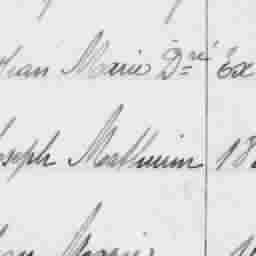 Jean Marie Dré Ex
Joseph Mathurin 18
Marie